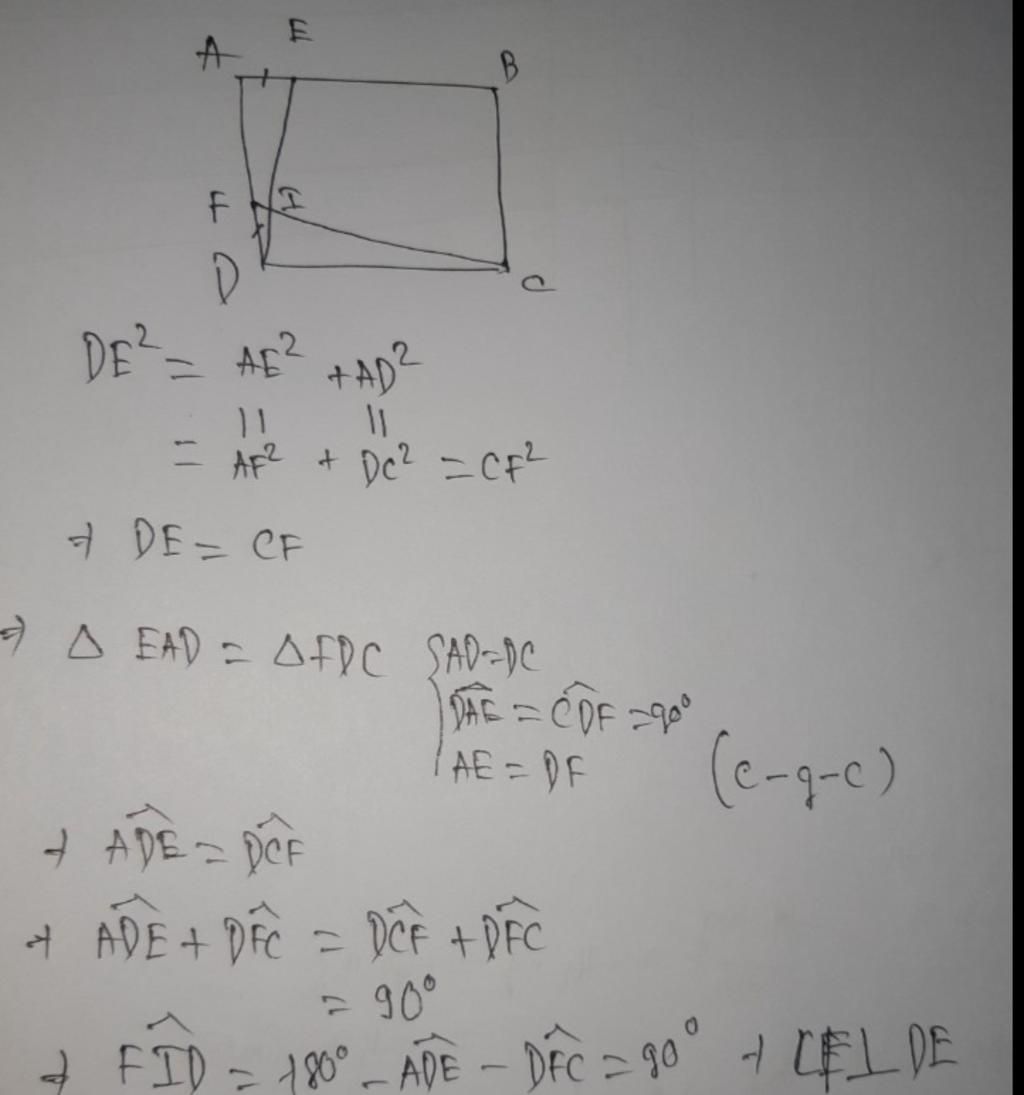 A E B
F I
D C
DE² = AE² + AD²
|| ||
= AF² + DC² = CF²
⇒ DE = CF
⇒ Δ EAD = ΔFDC { AD=DC
DÂE = CD̂F = 90°
AE = DF (c-g-c)
⇒ AD̂E = DĈF
⇒ AD̂E + DF̂C = DĈF + DF̂C
= 90°
⇒ FÎD = 180° - AD̂E - DF̂C = 90° ⇒ CF⊥DE